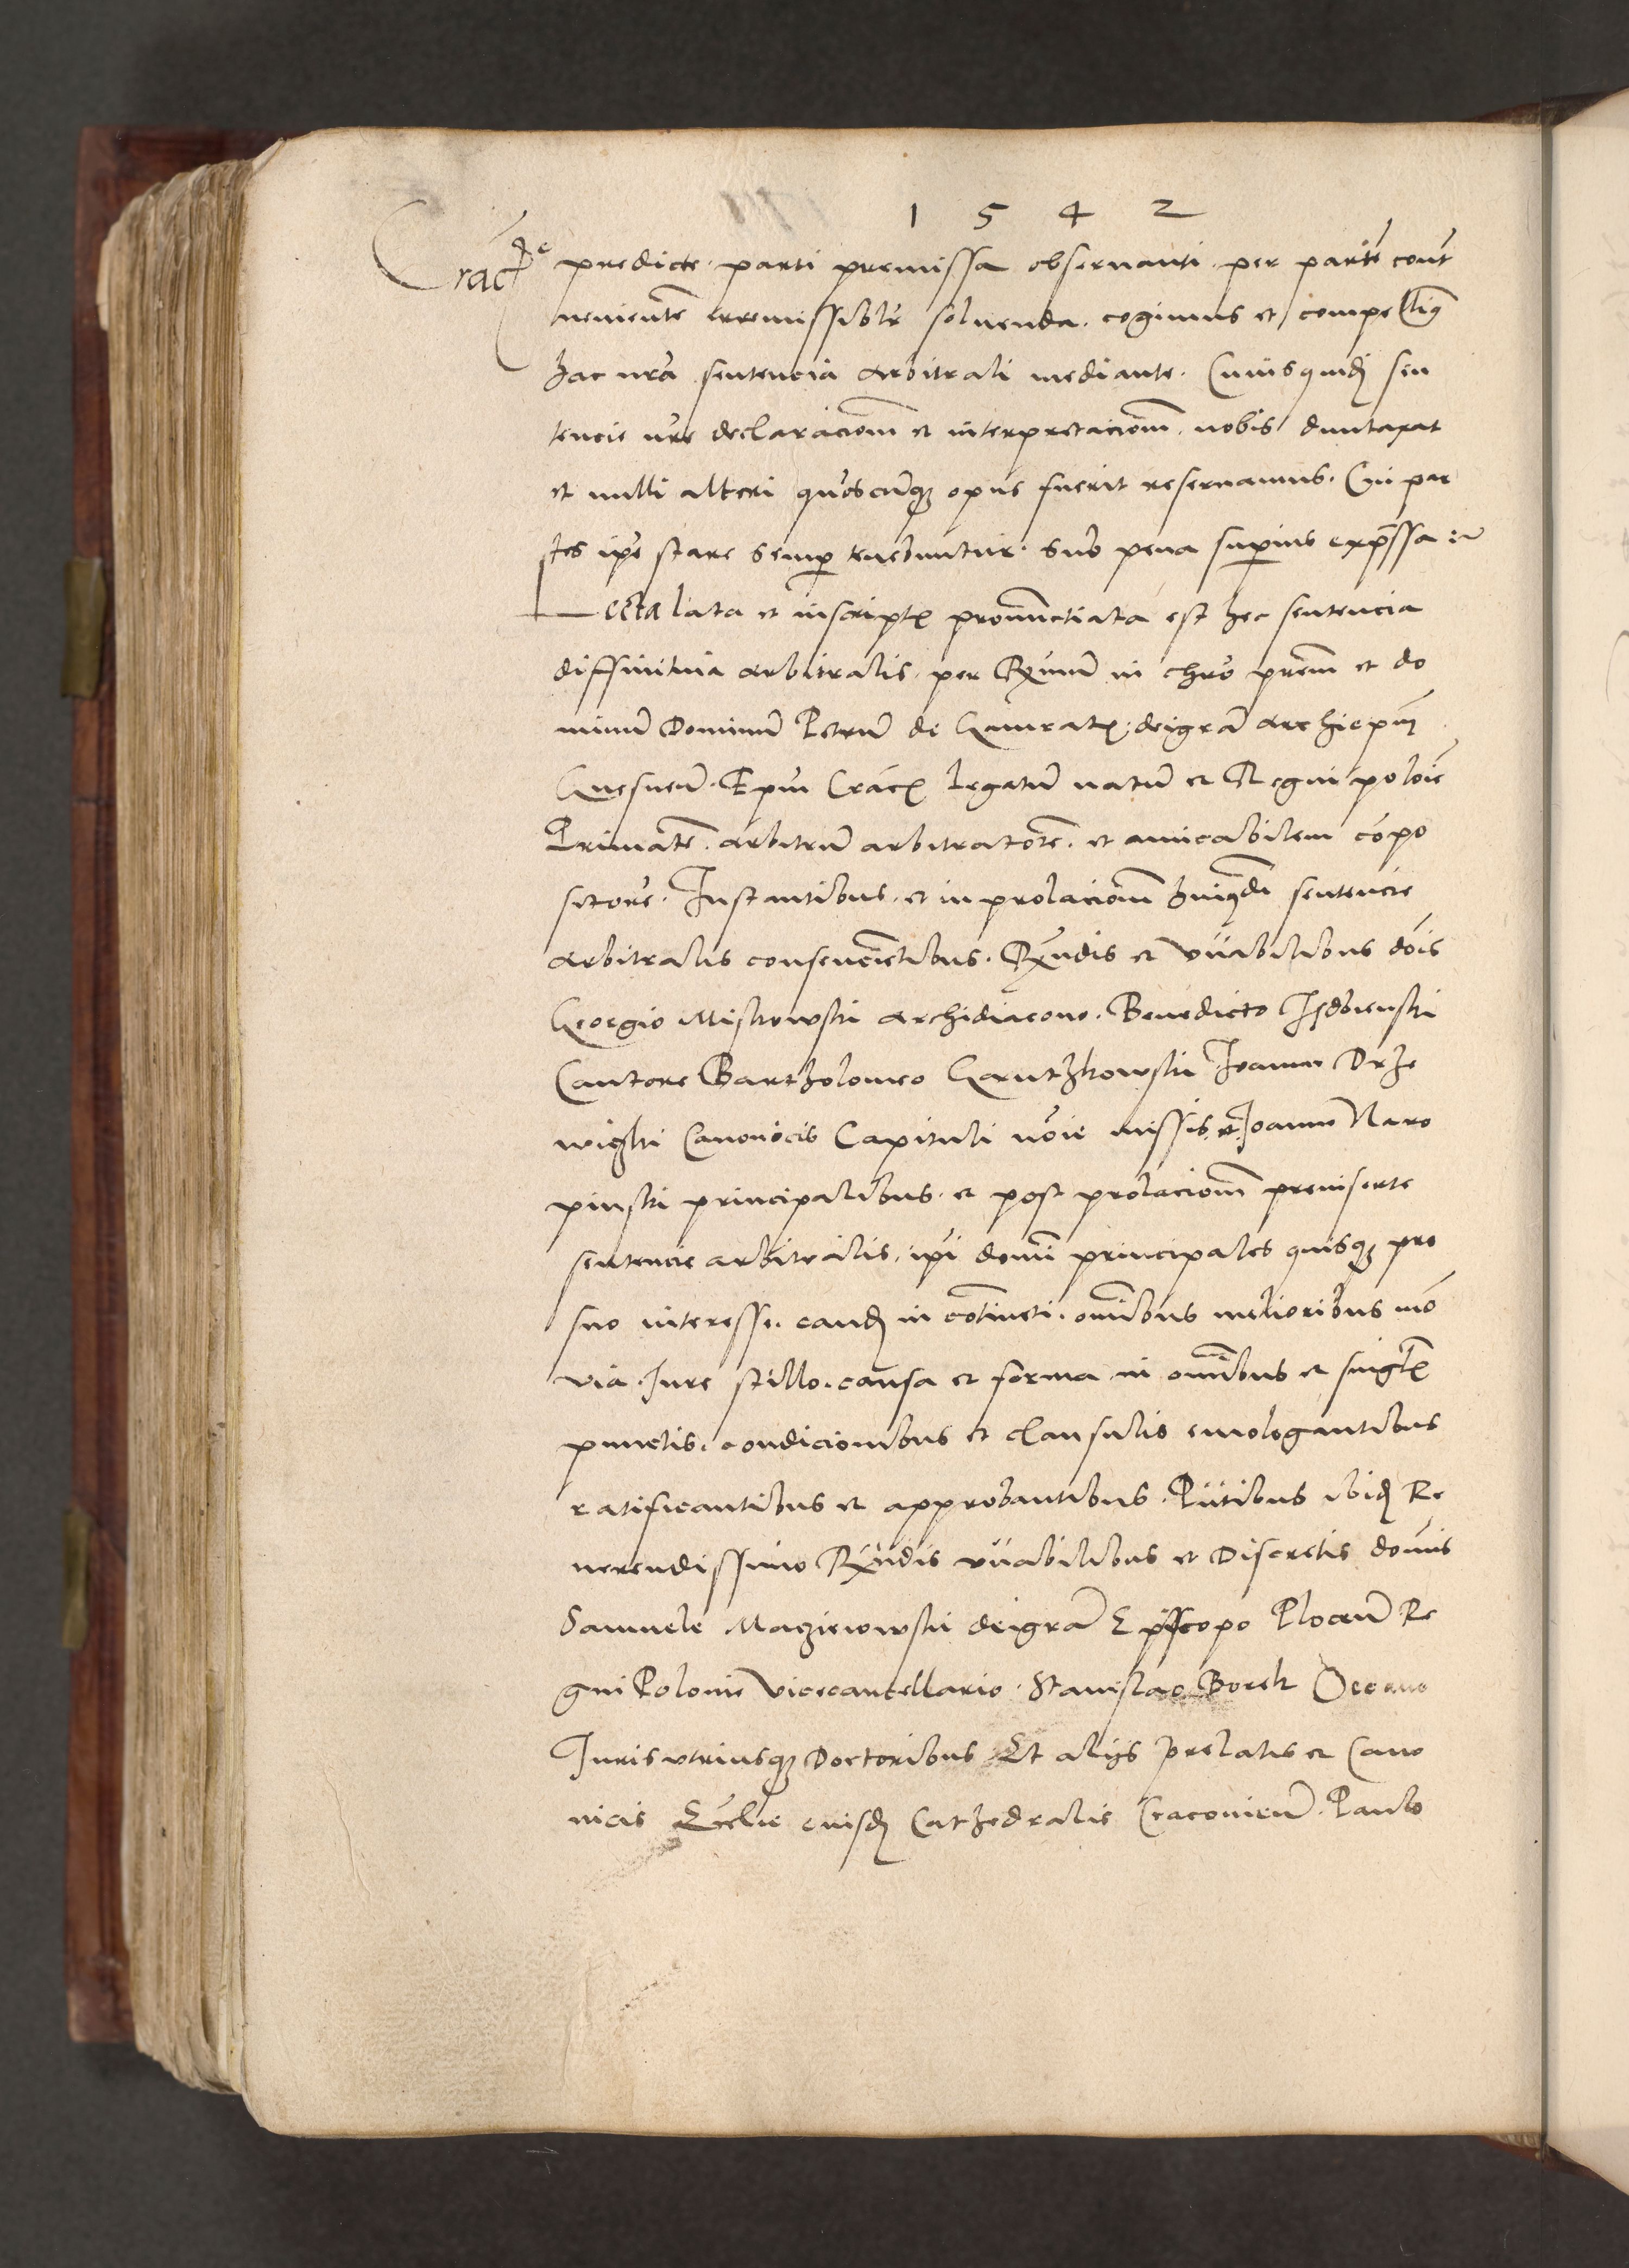 1 5 4 2
Crac de
predicte parti premissa obseruanti per parte cont
ueniente irremissiblr soluenda cogimus et compellim9
hac nra sentencia arbitrali mediante. Cuiusquid sen
tencie nre declaraciom et interpretaciom nobis duntaxat
et nulli alteri quoscunq opus fuerit reseruamus. Cui par
tes ipe stare semp tenebuntur. sub pena supius expssa
Lecta lata et inscriptis pronunctiata est hec sentencia
diffinitiua arbitralis. per Rximu in chro prem et do
minu Dominu Petru de Gamratis deigra archiepm
Gnesneu. Epum Crac legatu natu et Regni poloie
Primate. arbitru arbitratore. et amicabilem copo
sitore. Instantibus. et in prolaciom huiusdi sentencie
arbitralis consencietibus. Rxndis et vnabilibus dois
Georgio Miskowski archidiacono. Benedicto Isdbienski
Cantore Bartholomeo Gantzkowski Joanne Drze
wiczki Canonicis Capituli noie missis et Joanne Naro
pinski principalibus. et post prolaciom preinserte
sentencie arbitralis. ipi domi principales quisq pro
suo interesse. eand in cotineti. omibus melioribus mo
via Jure stillo. causa et forma in omibus et singlis
punctis. condicionibus et clausulis emologantibus
ratificantibus et approbantibus. Pntibus ibid Re
uerendissimo Rxndis vnabilibus et Discretis domis
Samuele Maczieiowski deigra Episcopo Plocen Re
gni Polonie Vicecancellario. Stanislao Borek Decano
Juris vtriusq Doctoribus Et alijs prelatis et Cano
nicis Ecclie eiusd Cathedralis Cracouien. Paulo